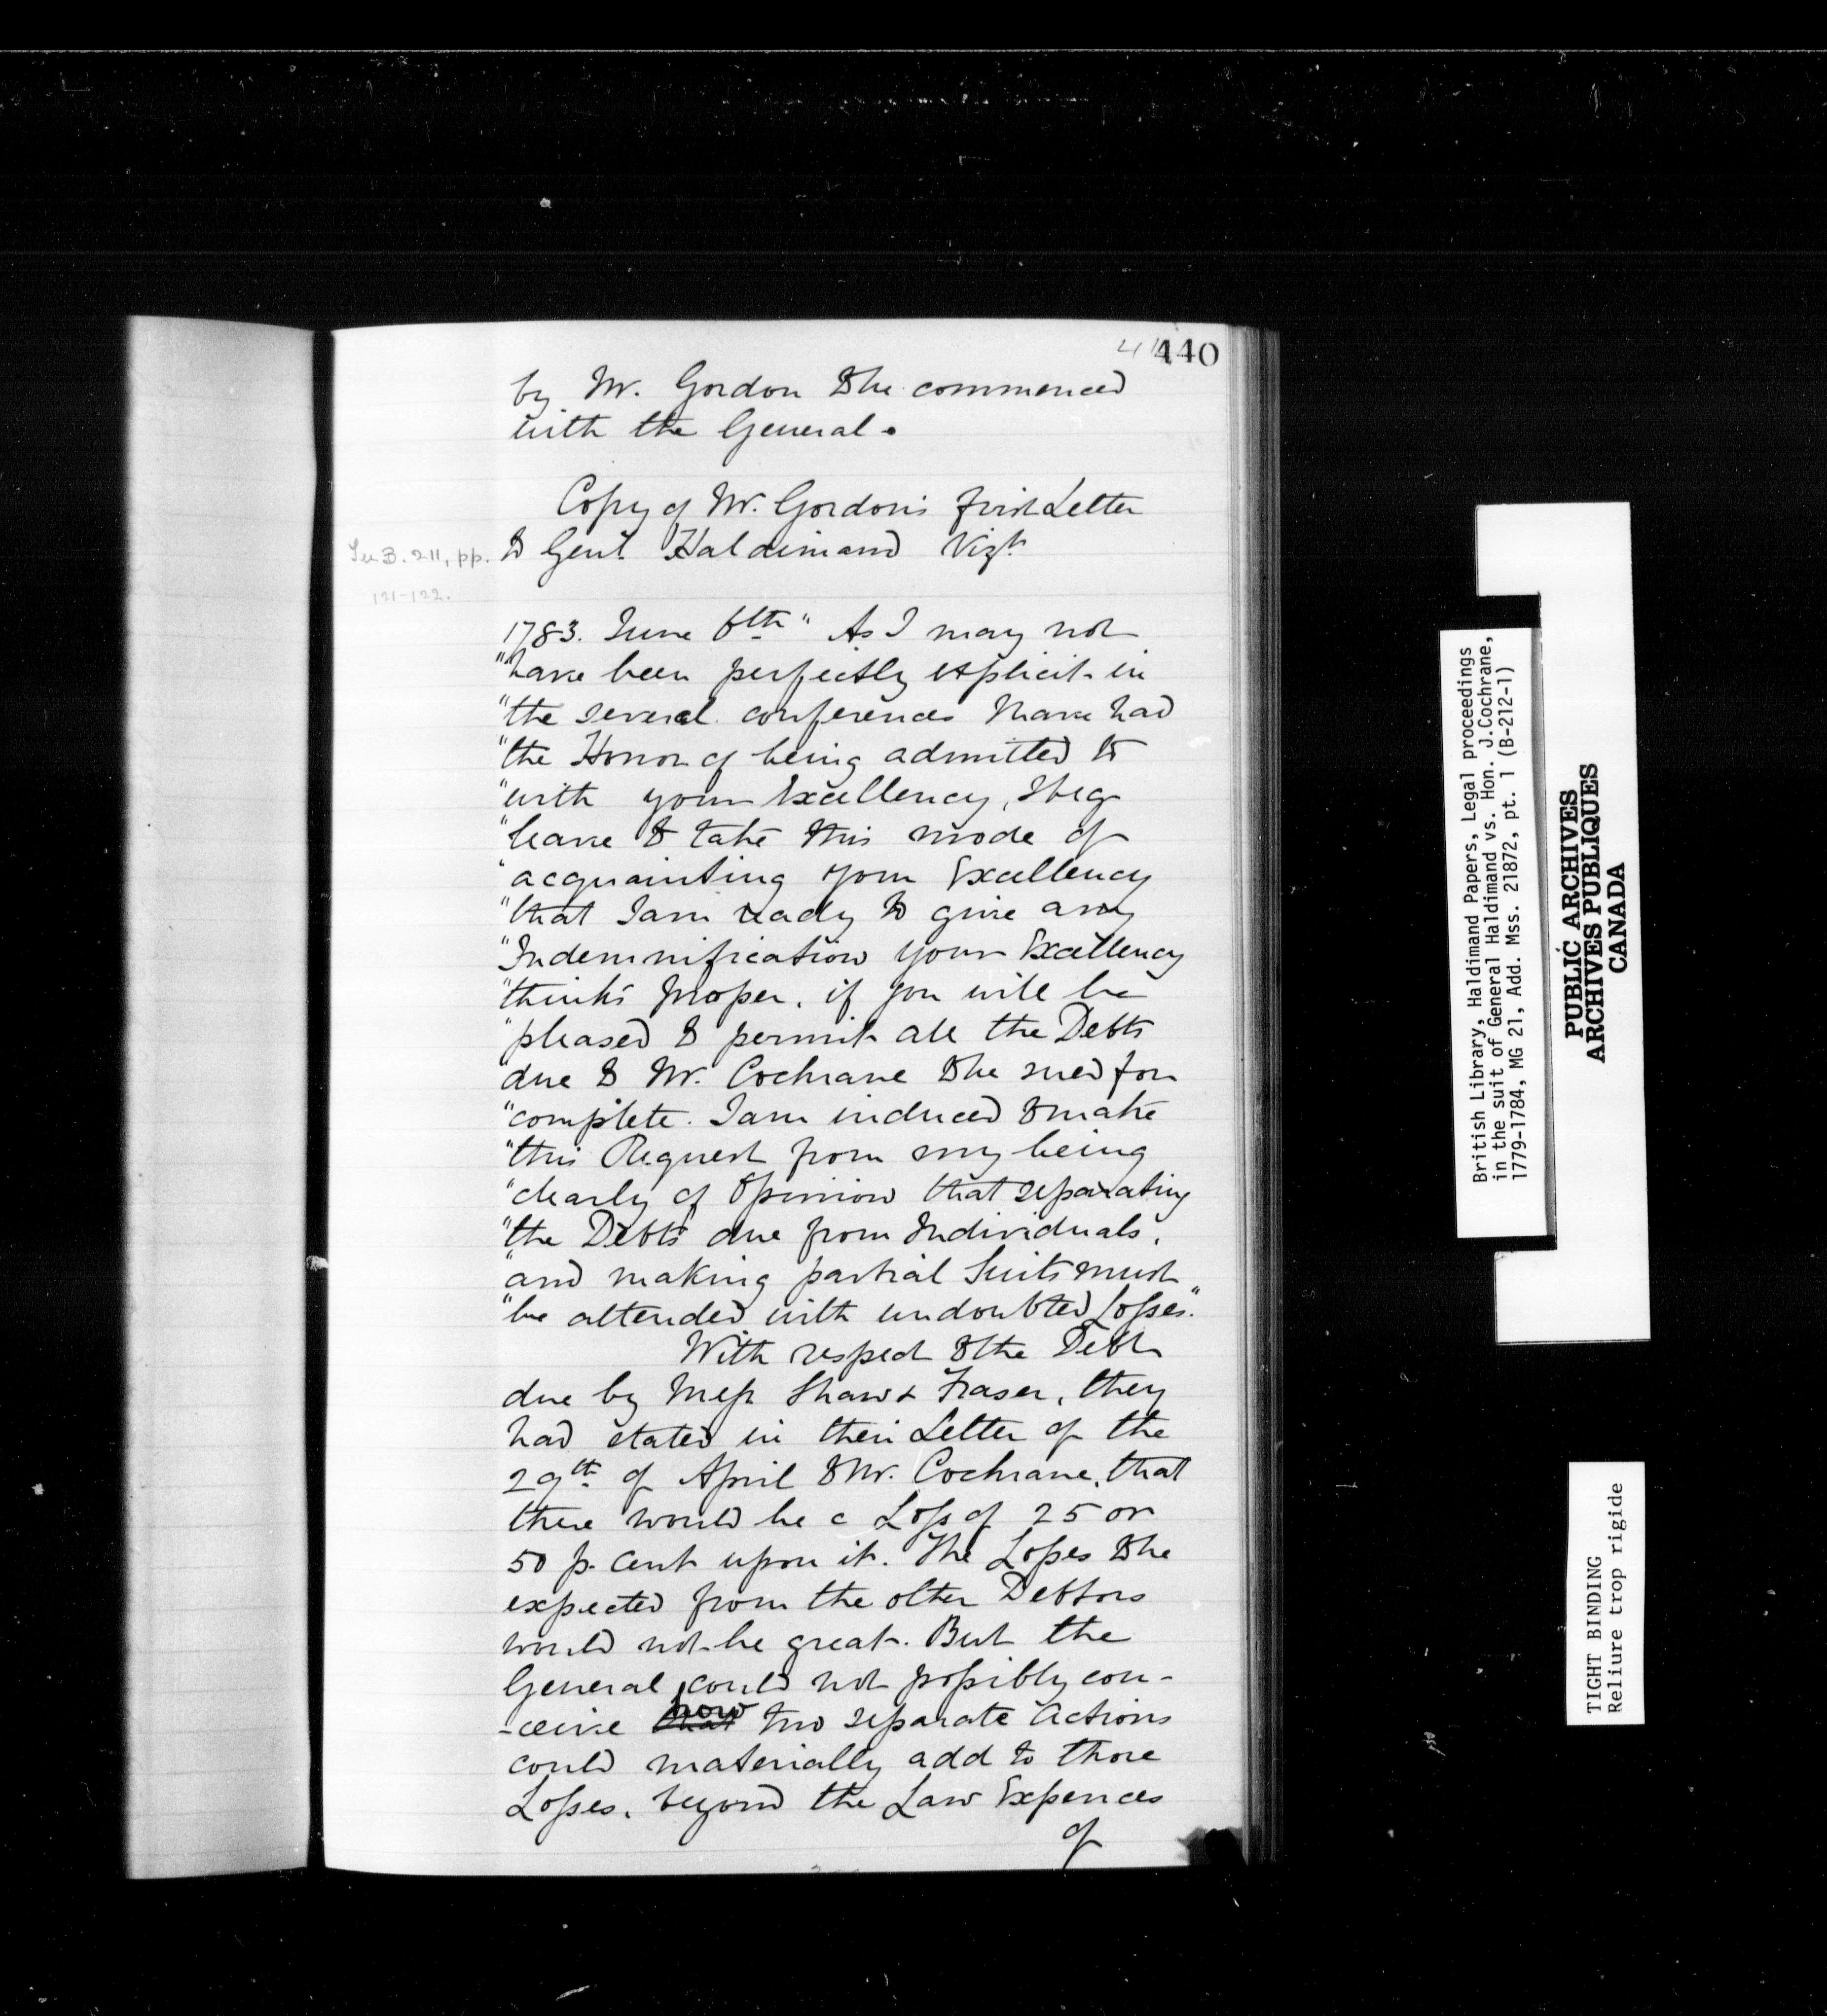 440
by Mr. Gordon to be commenced
with the General.
Copy of Mr. Gordon's first Letter
See B. 211, pp.
121-122.
to Genl. Haldimand Vizt.
1783. June 6th " As I may not
"have been perfectly explicit in
"the several conferences I have had
"the Honor of being admitted to
"with your Excellency, I beg
"leave to take this mode of
"acquainting your Excellency
"that I am ready to give any
"Indemnification your Excellency
"thinks proper, if you will be
"pleased to permit all the Debts
"due to Mr. Cochrane to be sued for
"complete. I am induced to make
"this Request from my being
"clearly of Opinion that separating
"the Debts due from Individuals,
"and making partial Suits must
"be attended with undoubted Losses."
With respect to the Debt
due by Mess. Shaw & Fraser, they
had stated in their Letter of the
29th of April to Mr. Cochrane, that
there would be a Loss of 25 or
50 p. Cent upon it. The Losses to be
expected from the other Debtors
would not be great. But the
General could not possibly con-
-ceive that how two separate Actions
could materially add to those
Losses, beyond the Law Expences
of
British Library, Haldimand Papers, Legal proceedings
in the suit of General Haldimand vs. Hon. J.Cochrane,
1779-1784, MG 21, Add. Mss. 21872, pt. 1 (B-212-1)
PUBLIC ARCHIVES
ARCHIVES PUBLIQUES
CANADA
TIGHT BINDING
Reliure trop rigide